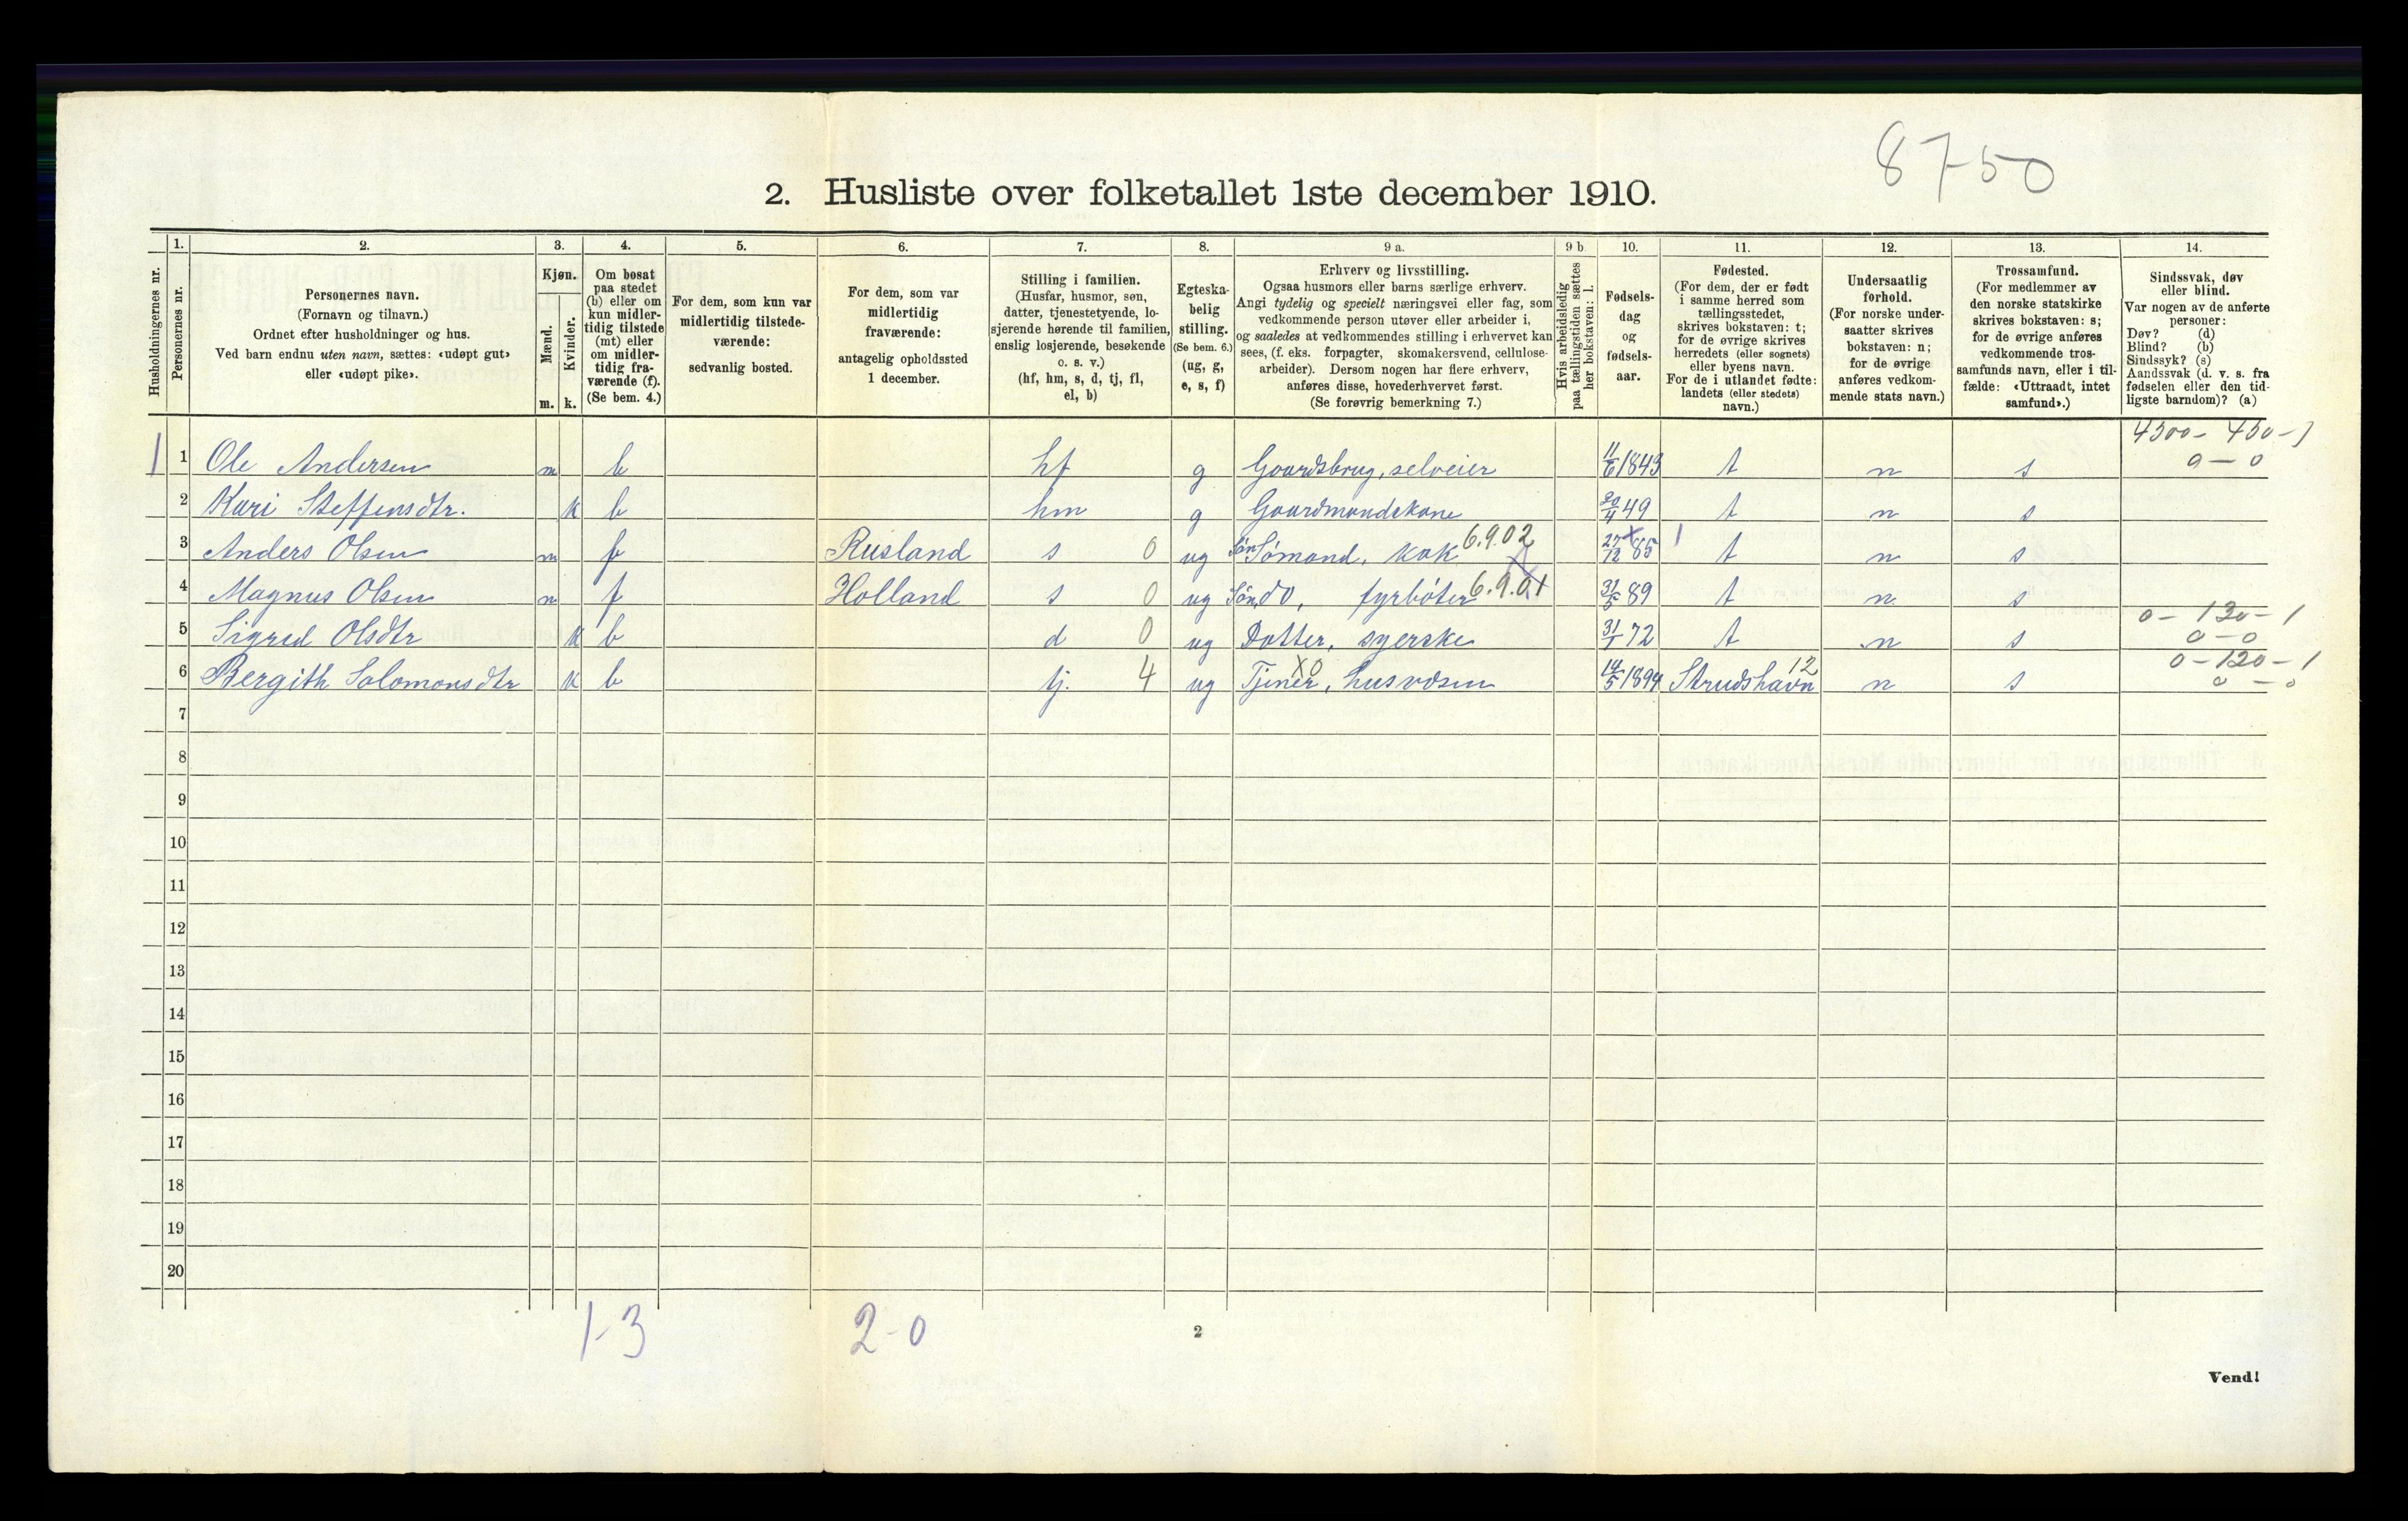 8750
2. Husliste over folketallet 1ste december 1910.
Husholdningernes nr.
1.
Personernes nr.
2.
Personernes navn.
(Fornavn og tilnavn.)
Ordnet efter husholdninger og hus.
Ved barn endnu uten navn, sættes: «udøpt gut»
eller «udøpt pike».
3.
Kjøn.
Mænd.
Kvinder.
m. k.
4.
Om bosat
paa stedet
(b) eller om
kun midler-
tidig tilstede
(mt) eller
om midler-
tidig fra-
værende (f).
(Se bem. 4.)
5.
For dem, som kun var
midlertidig tilstede-
værende:
sedvanlig bosted.
6.
For dem, som var
midlertidig
fraværende:
antagelig opholdssted
1 december.
7.
Stilling i familien.
(Husfar, husmor, søn,
datter, tjenestetyende, lo-
sjerende hørende til familien,
enslig losjerende, besøkende
o. s. v.)
(hf, hm, s, d, tj, fl,
el, b)
8.
Egteska-
belig
stilling.
(Se bem. 6.)
(ug, g,
e, s, f)
9 a.
Erhverv og livsstilling.
Ogsaa husmors eller barns særlige erhverv.
Angi tydelig og specielt næringsvei eller fag, som
vedkommende person utøver eller arbeider i,
og saaledes at vedkommendes stilling i erhvervet kan
sees, (f. eks. forpagter, skomakersvend, cellulose-
arbeider). Dersom nogen har flere erhverv,
anføres disse, hovederhvervet først.
(Se forøvrig bemerkning 7.)
9 b
Hvis arbeidsledig
paa tællingstiden sættes
her bokstaven: l.
10.
Fødsels-
dag
og
fødsels-
aar.
11.
Fødested.
(For dem, der er født
i samme herred som
tællingsstedet,
skrives bokstaven: t;
for de øvrige skrives
herredets (eller sognets)
eller byens navn.
For de i utlandet fødte:
landets (eller stedets)
navn.)
12.
Undersaatlig
forhold.
(For norske under-
saatter skrives
bokstaven: n;
for de øvrige
anføres vedkom-
mende stats navn.)
13.
Trossamfund.
(For medlemmer av
den norske statskirke
skrives bokstaven: s;
for de øvrige anføres
vedkommende tros-
samfunds navn, eller i til-
fælde: «Uttraadt, intet
samfund».)
14.
Sindssvak, døv
eller blind.
Var nogen av de anførte
personer:
Døv? (d)
Blind? (b)
Sindssyk? (s)
Aandssvak (d. v. s. fra
fødselen eller den tid-
ligste barndom)? (a)
4500 - 450 - 1
1 1 Ole Andersen m b hf g Gaardsbrug, selveier 11/6 1843 t n s 0 - 0
2 Kari Steffensdtr. k b hm g Gaardmandskone 20/4 49 t n s
3 Anders Olsen m f Rusland s 0 ug Søn Sømand, kok 6.9.02 27/12 85 1 t n s
4 Magnus Olsen m f Holland s 0 ug Søn, do, fyrbøter 6.9.01 31/5 89 t n s
0 - 130 - 1
5 Sigred Olsdtr k b d 0 ug Datter, syerske 31/1 72 t n s 0 - 0
0 - 120 - 1
6 Bergith Solomonsdtr k b tj. 4 ug Tjener, husvæsen XO 14/5 1894 Strudshavn 12 n s 0 - 0
7
8
9
10
11
12
13
14
15
16
17
18
19
20
1-3
2-0
2
Vend!